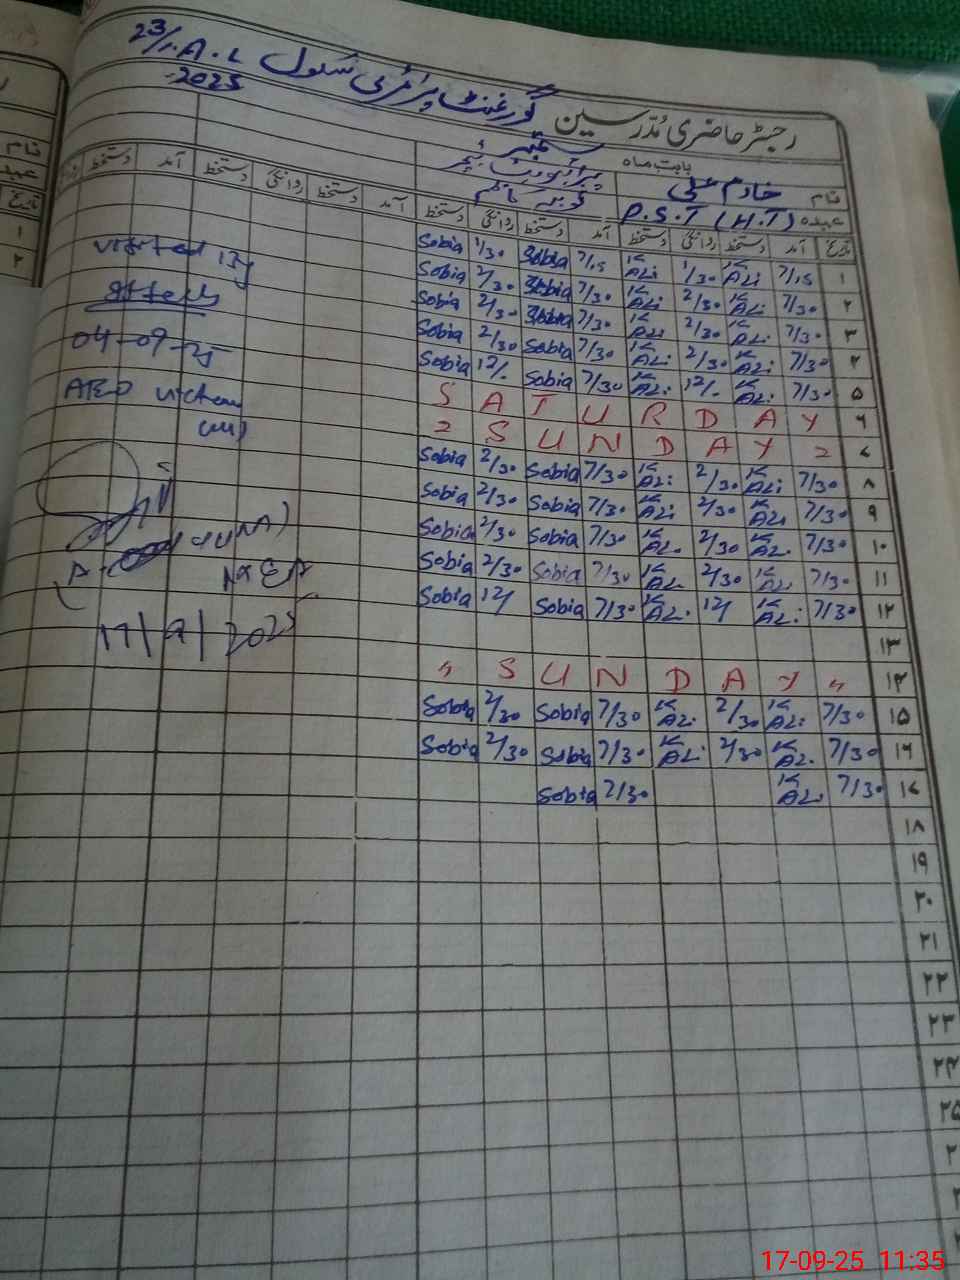 گورنمنٹ پرائمری سکول 23/1.A.L
رجسٹر حاضری مدرسین
2025
بابت ماہ ستمبر
نام خادم علی
عہدہ P.S.T (H.T)
تاریخ آمد دستخط روانگی دستخط آمد دستخط روانگی دستخط آمد دستخط روانگی دستخط آمد دستخط
۱ 7/15 K ALi 1/30 K ALi 7/15 Sobia 1/30 Sobia
۲ 7/30 K ALi 2/30 K ALi 7/30 Sobia 2/30 Sobia
۳ 7/30 K ALi 2/30 K ALi 7/30 Sobia 2/30 Sobia
۴ 7/30 K ALi 2/30 K ALi 7/30 Sobia 2/30 Sobia
۵ 7/30 K ALi 12/. K ALi 7/30 Sobia 12/. Sobia
۶ S A T U R D A Y
۷ S U N D A Y
۸ 7/30 K ALi 2/30 K ALi 7/30 Sobia 2/30 Sobia
۹ 7/30 K ALi 2/30 K ALi 7/30 Sobia 2/30 Sobia
۱۰ 7/30 K AL. 2/30 K AL. 7/30 Sobia 2/30 Sobia
۱۱ 7/30 K AL. 2/30 K AL. 7/30 Sobia 2/30 Sobia
۱۲ 7/30 K ALi 12/ K AL. 7/30 Sobia 12/ Sobia
۱۳
۱۴ " S U N D A Y "
۱۵ 7/30 K ALi 2/30 K ALi 7/30 Sobia 2/30 Sobia
۱۶ 7/30 K AL. 2/30 K ALi 7/30 Sobia 2/30 Sobia
۱۷ 7/30 K ALi 7/30 Sobia
۱۸
۱۹
۲۰
۲۱
۲۲
۲۳
۲۴
۲۵
visited by
04-09-25
AEO
17/9/2025
17-09-25 11:35